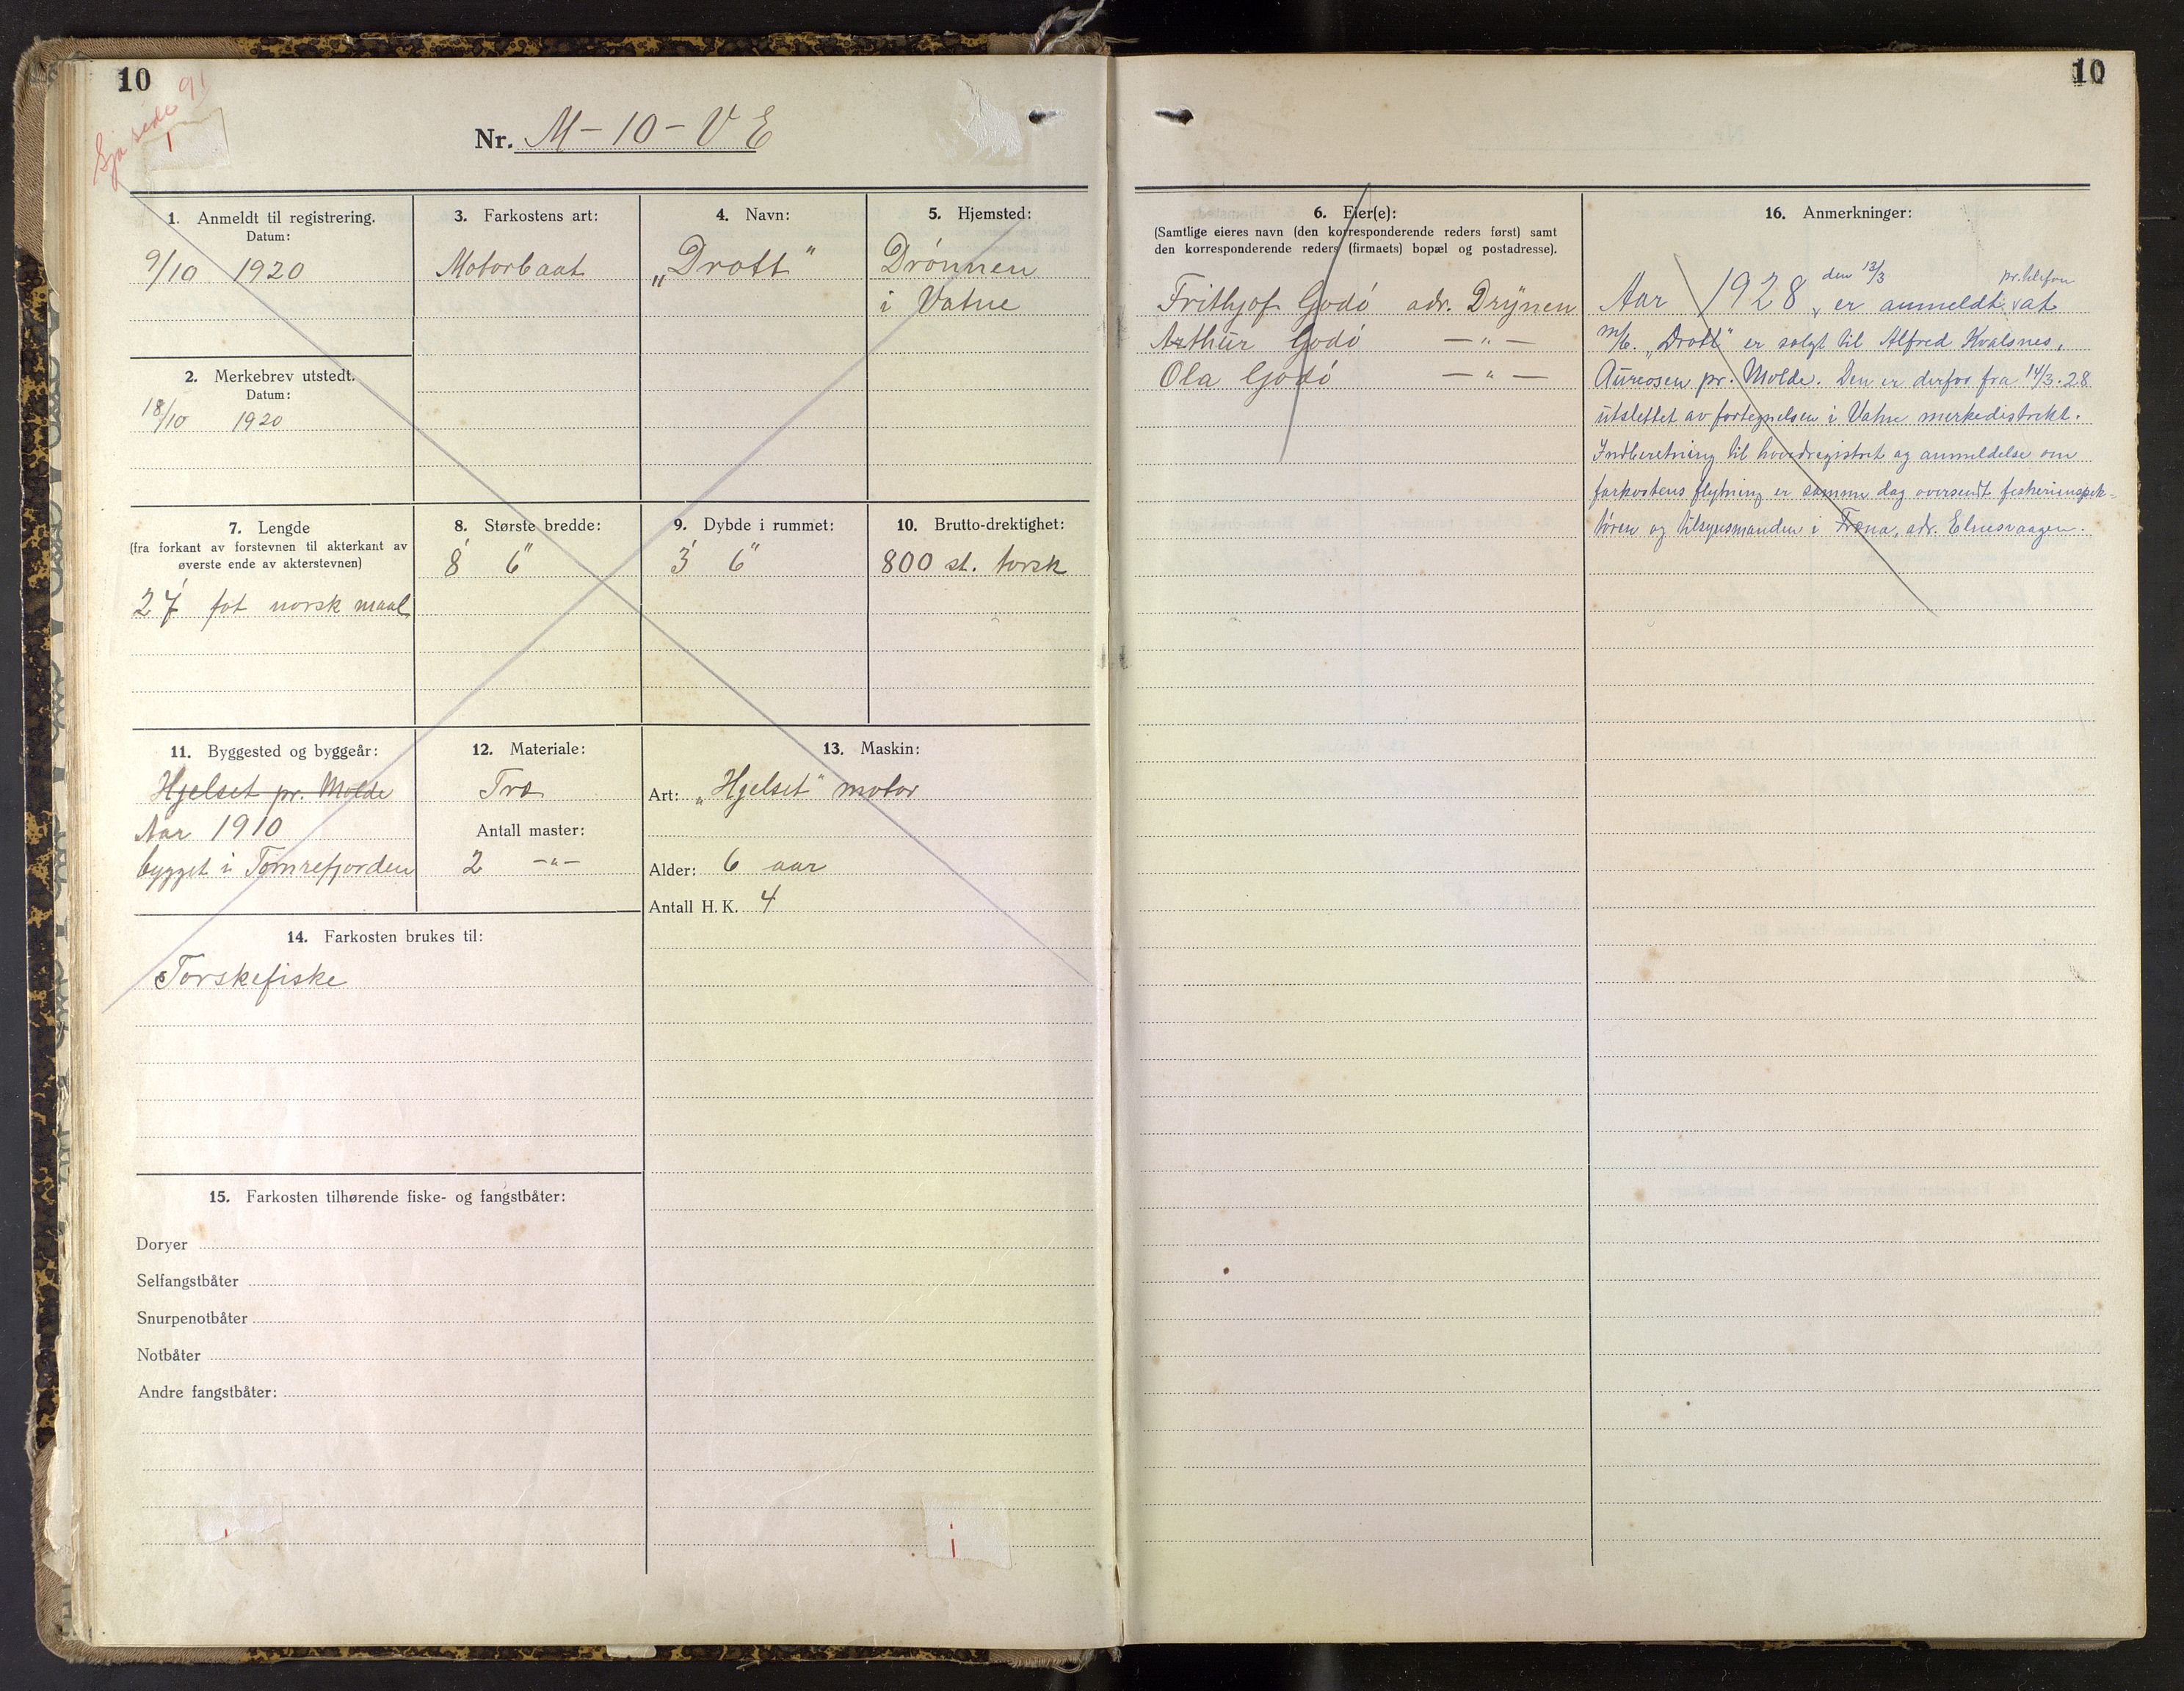 10
Sjå side 91
Nr. M-10-VE
1. Anmeldt til registrering.
Datum:
9/10 1920
2. Merkebrev utstedt.
Datum:
18/10 1920
3. Farkostens art:
Motorbaat
4. Navn:
„Drott"
5. Hjemsted:
Drønnen
i Vatne
7. Lengde
(fra forkant av forstevnen til akterkant av
øverste ende av akterstevnen)
27' fot norsk maal
8. Største bredde:
8' 6"
9. Dybde i rummet:
3' 6"
10. Brutto-drektighet:
800 st. torsk
11. Byggested og byggeår:
Hjelset pr. Molde
Aar 1910
bygget i Tomrefjorden
12. Materiale:
Træ
Antall master:
2 -"-
13. Maskin:
Art: „Hjelset" motor
Alder: 6 aar
Antall H.K. 4
14. Farkosten brukes til:
Torskefiske
15. Farkosten tilhørende fiske- og fangstbåter:
Doryer
Selfangstbåter
Snurpenotbåter
Notbåter
Andre fangstbåter:
i
10
6. Eier(e):
(Samtlige eieres navn (den korresponderende reders først) samt
den korresponderende reders (firmaets) bopæl og postadresse).
Frithjof Godø adr. Drynen
Arthur Godø -"-
Ola Godø -"-
16. Anmerkninger:
Aar 1928 den 13/3 er anmeldt pr. telefon at
m/b. „Drott" er solgt til Alfred Kvalsnes,
Aureosen pr. Molde. Den er derfor fra 14/3.28
utslettet av fortegnelsen i Vatne merkedistrikt.
Indberetning til hovedregistret og anmeldelse om
farkostens flytning er samme dag oversendt fiskeriinspek-
tøren og tilsynsmanden i Fræna, adr. Elnesvaagen.